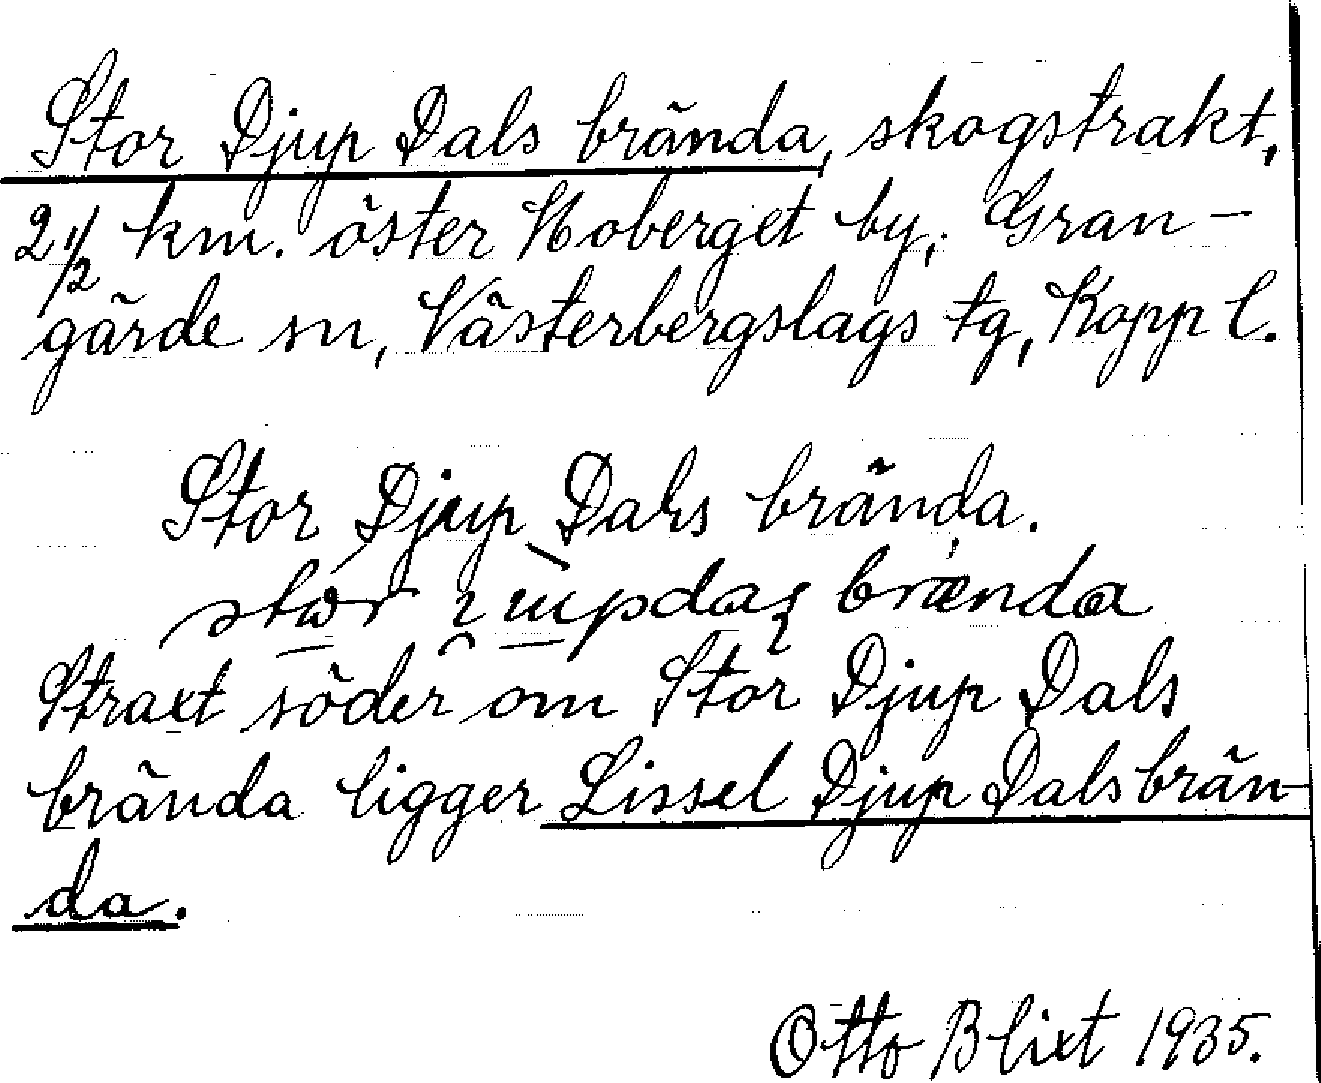 Stor Djup Dals brända, skogstrakt,
2 1/2 km. öster Hoberget by, Gran-
gärde sn, Västerbergslags tg, Kopp l.
Stor Djup Dals brända.
brænda
Straxt söder om Stor Djup Dals
brända ligger Lissel Djup Dals brän-
da.
Otto Blixt 1935.